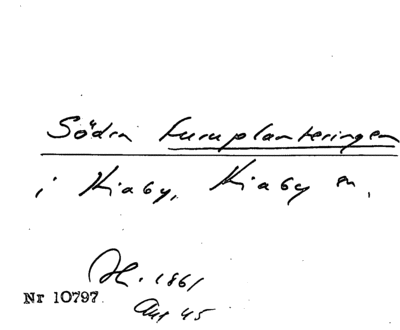 Södra Furuplanteringen
i Kiaby, Kiaby sn,
JH. 1861
Nr 10797
Avs 45